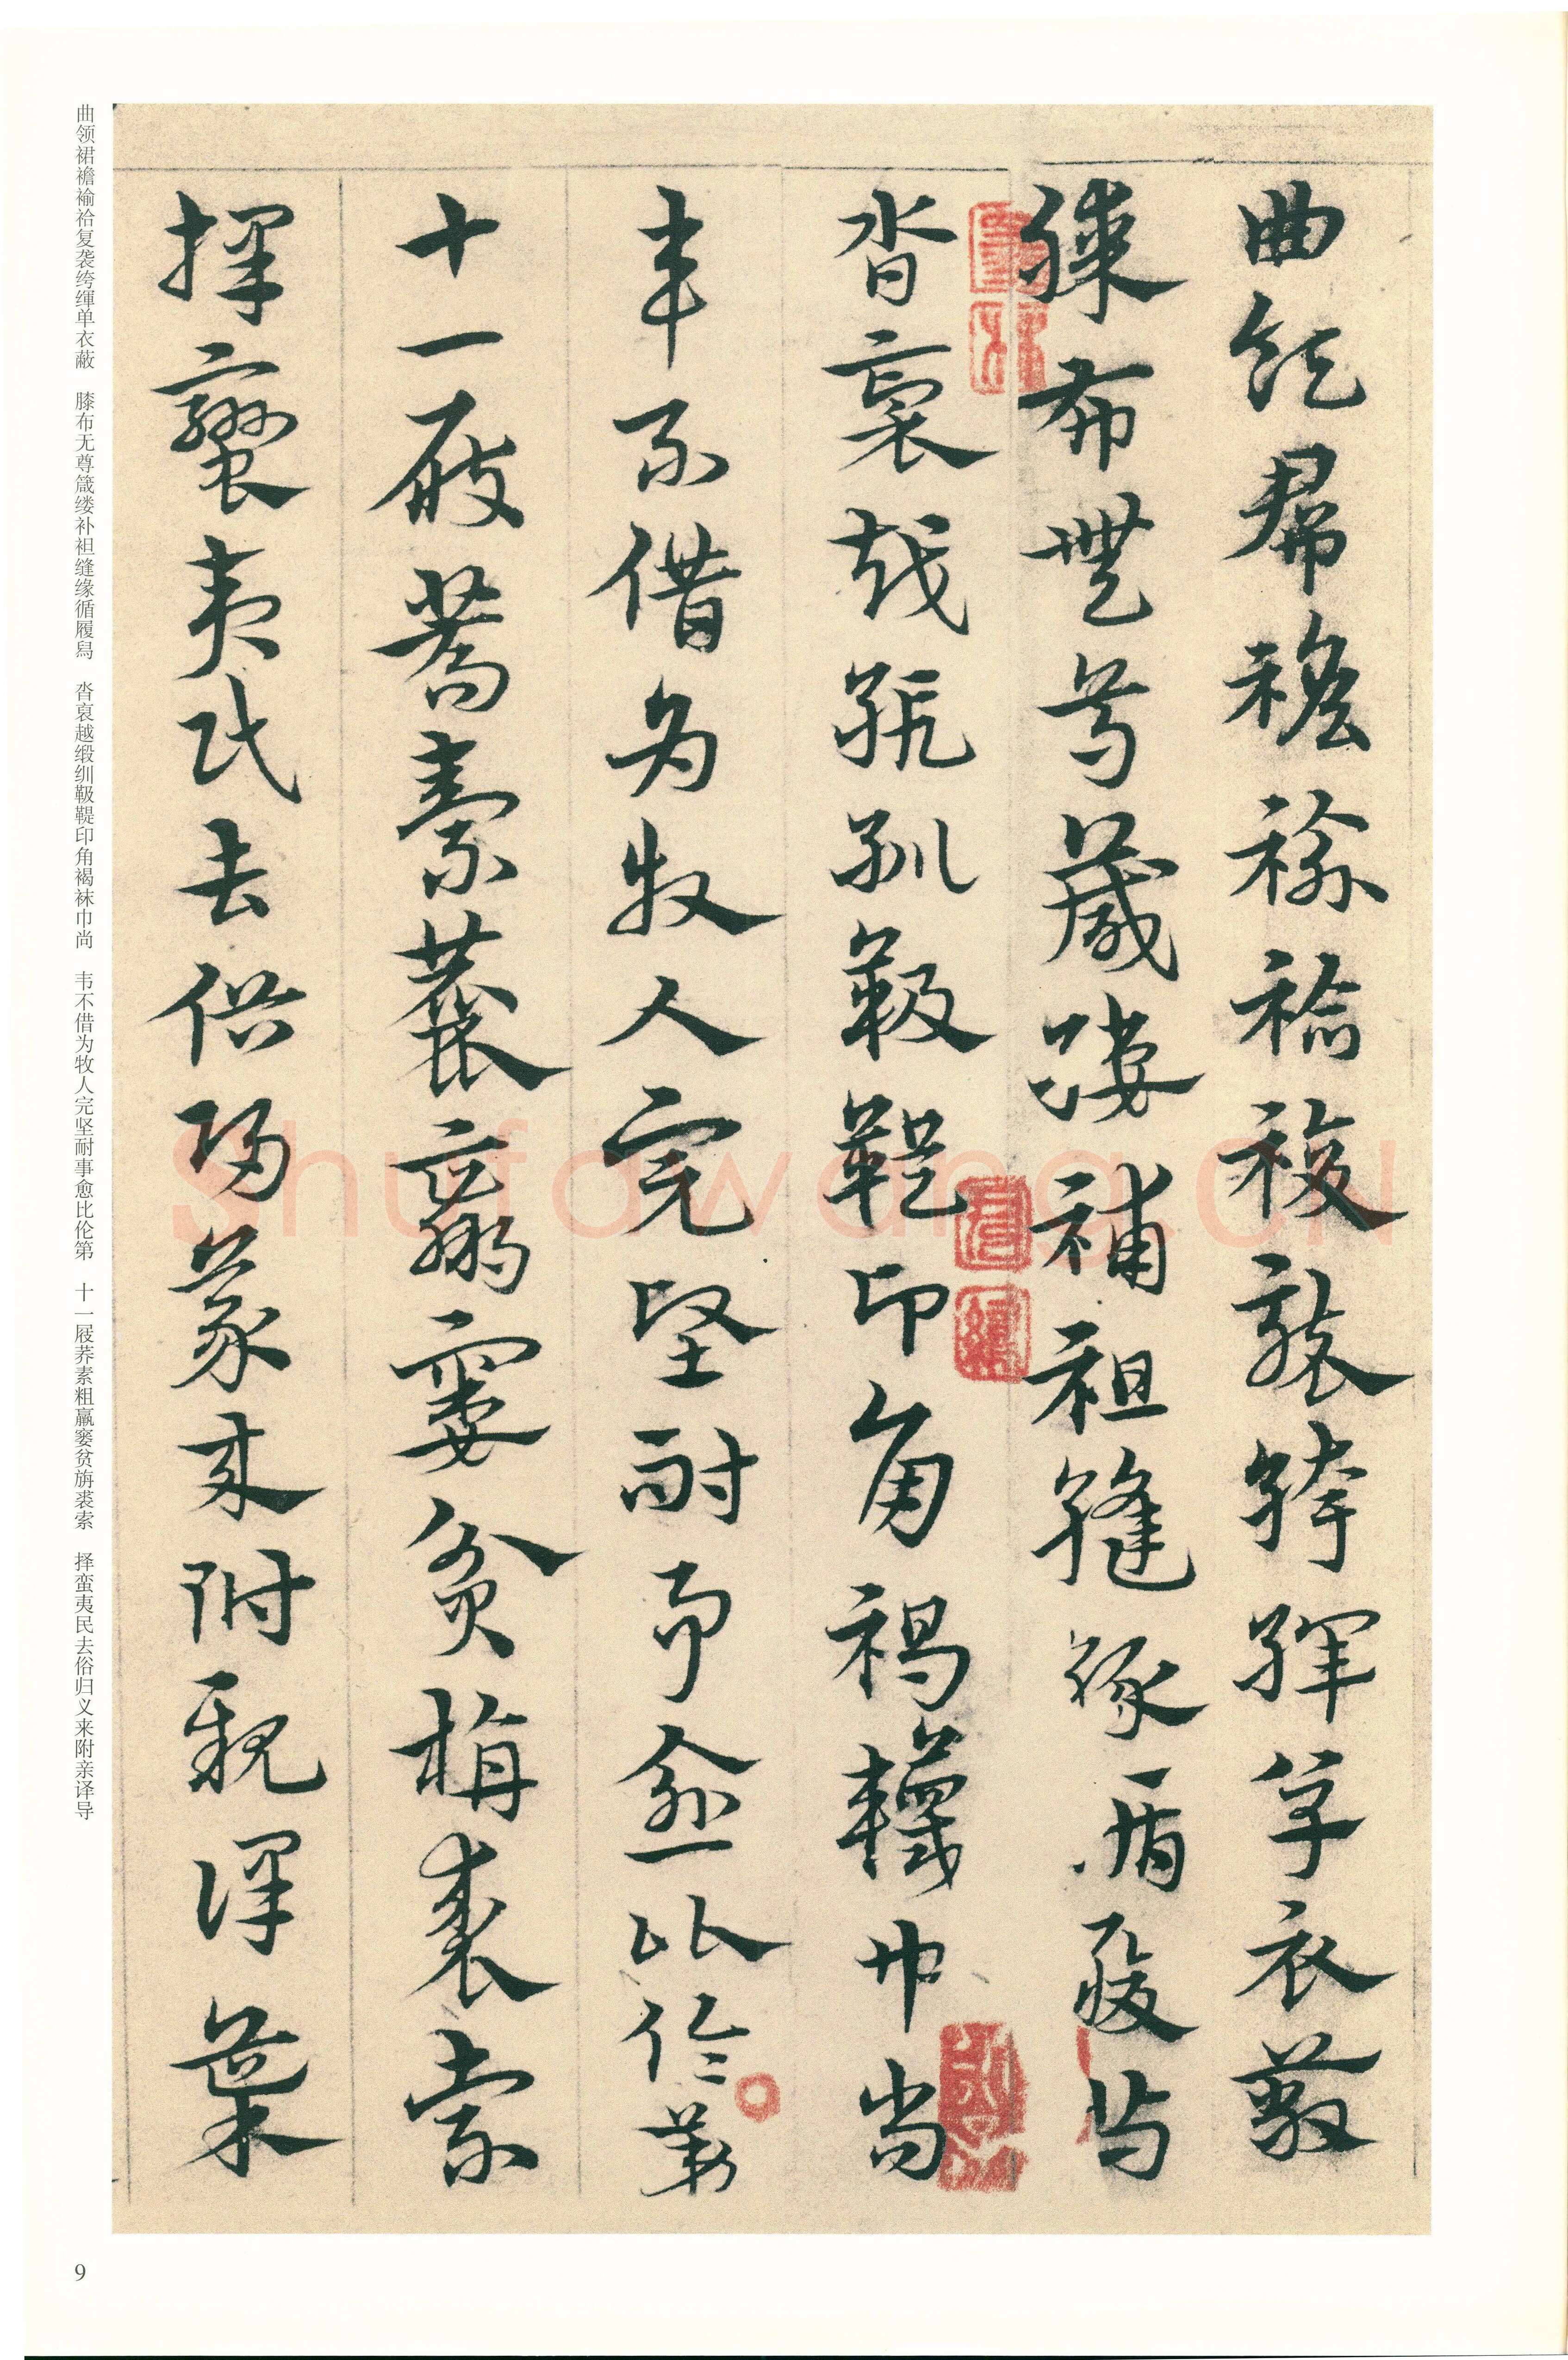 曲領帬襜褕袷複襲絝緷單衣蔽
膝布無尊箴縷補袒縫緣循履舄
沓裒越緞紃靸鞮印角褐韤巾尚
韋不借為牧人完堅耐事愈比倫第
十一屐蕎素麤羸窶貧旃裘索
擇蠻夷民去俗歸義來附親譯導
曲领裙襜褕袷复袭绔緷单衣蔽　膝布无尊箴缕补袒缝缘循履舄　沓裒越缎紃靸鞮印角褐袜巾尚　韦不借为牧人完坚耐事愈比伦第　十一屐荞素粗羸窭贫旃裘索　择蛮夷民去俗归义来附亲译导
shufawang.CN
9